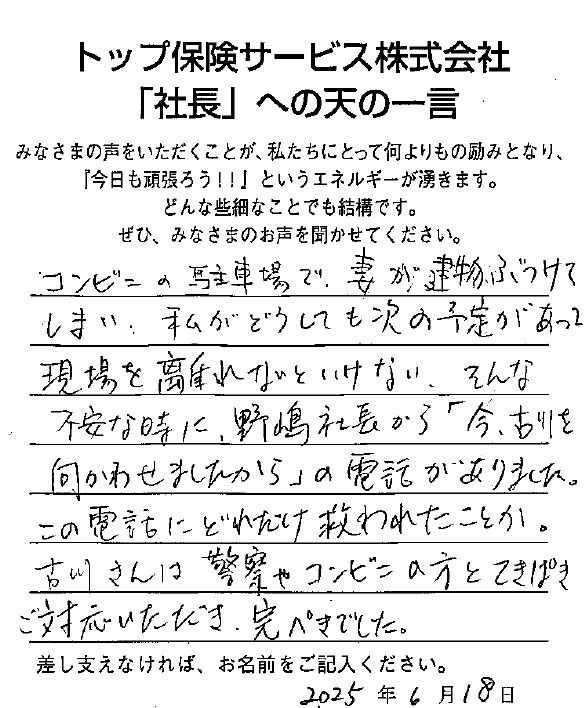 トップ保険サービス株式会社
「社長」への天の一言
みなさまの声をいただくことが、私たちにとって何よりもの励みとなり、
『今日も頑張ろう!!』というエネルギーが湧きます。
どんな些細なことでも結構です。
ぜひ、みなさまのお声を聞かせてください。
コンビニの駐車場で、妻が建物ぶつけて
しまい、私がどうしても次の予定があって
現場を離れないといけない、そんな
不安な時に、野嶋社長から「今、古川を
向かわせましたから」の電話がありました。
この電話にどれだけ救われたことか。
古川さんは警察やコンビニの方とてきぱき
ご対応いただき、完ぺきでした。
差し支えなければ、お名前をご記入ください。
2025年6月18日